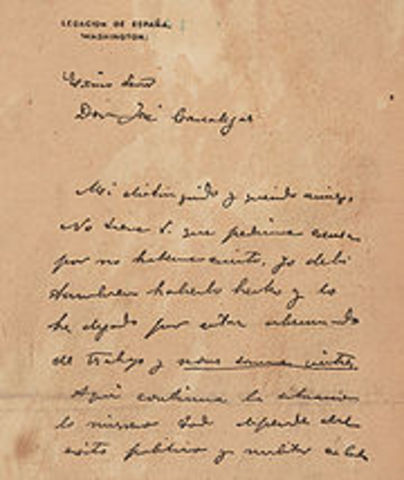 LEGACION DE ESPAÑA.
WASHINGTON.
Excmo Señor
Don José Canalejas
Mi distinguido y querido amigo:
No tiene V. que pedirme excusas
por no haberme escrito, yo debí
tambien haberlo hecho y lo
he dejado por estar abrumado
de trabajo y
Aquí continua la situacion
lo mismo. Todo depende del
exito politico y militar en